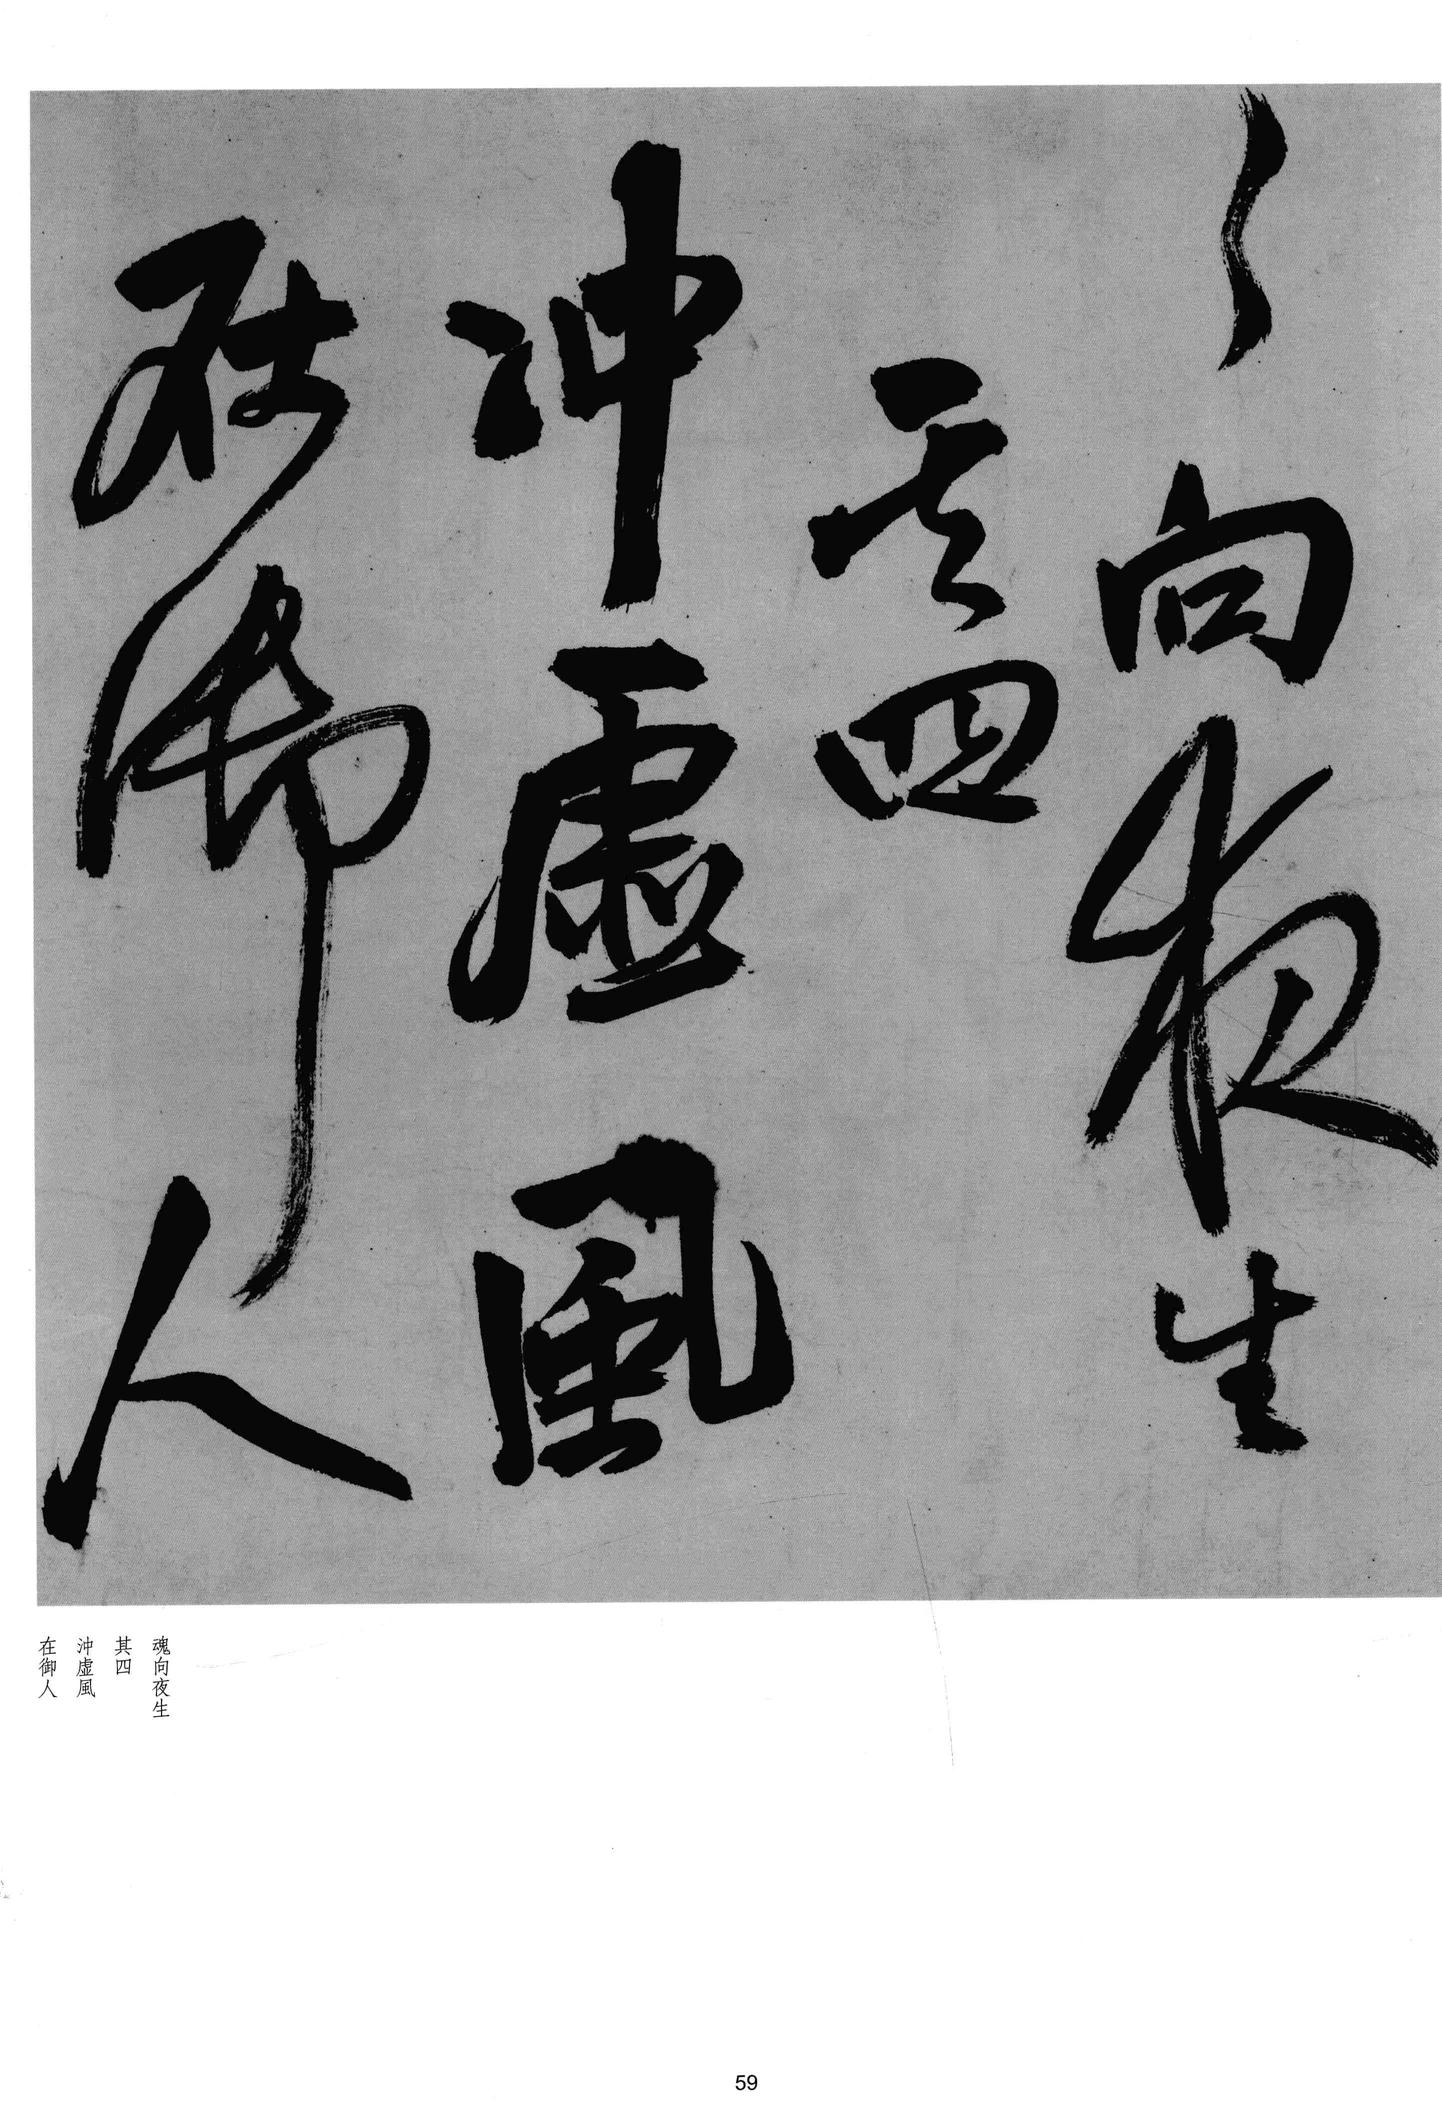 〻向夜生
其四
冲虛風
在御人
魂向夜生
其四
沖虛風
在御人
59